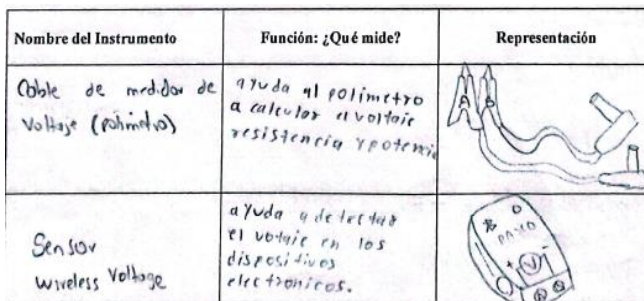 Nombre del Instrumento
Función: ¿Qué mide?
Representación
Cable de medidor de
voltaje (polimetro)
ayuda al polimetro
a calcular el voltaje
resistencia y potencia
Sensor
wireless voltage
ayuda a detectar
el votaje en los
dispositivos
electronicos.
PASCO
+ V -